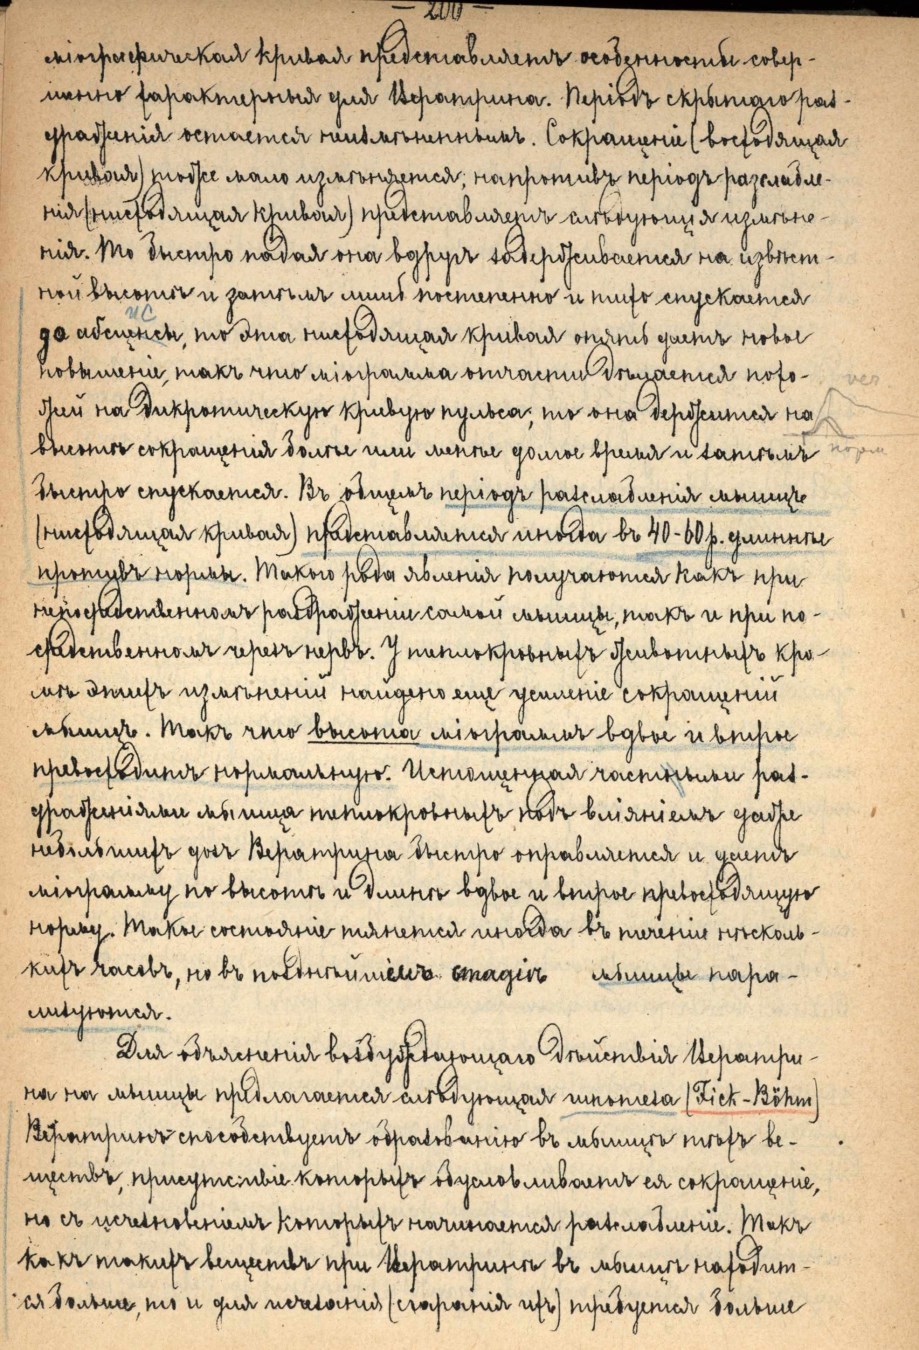 — 200 —
міографическая кривая представляетъ особенности совер-
шенно характерныя для Вератрина. Періодъ скрытаго раз-
драженія остается неизмѣненнымъ. Сокращеніе (восходящая
кривая) тоже мало измѣняется; напротивъ періодъ разслабле-
нія (нисходящая кривая) представляетъ слѣдующія измѣне-
нія. То быстро падая она вдругъ задерживается на извѣст-
ной высотѣ и затѣмъ лишь постепенно и тихо спускается
до абсциссы, то эта нисходящая кривая опять даетъ новое
повышеніе, такъ что міограмма отчасти дѣлается похо-
жей на дикротическую кривую пульса; то она держится на
высотѣ сокращенія болѣе или менѣе долгое время и затѣмъ
быстро спускается. Въ общемъ періодъ разслабленія мышцъ
(нисходящая кривая) представляется иногда въ 40-60 р. длиннѣе
противъ нормы. Такого рода явленія получаются какъ при
непосредственномъ раздраженіи самой мышцы, такъ и при по-
средственномъ черезъ нервъ. У теплокровныхъ животныхъ кро-
мѣ этихъ измѣненій найдено еще усиленіе сокращеній
мышцъ. Такъ что высота міограммъ вдвое и втрое
превосходитъ нормальную. Истощенная частными раз-
драженіями мышца теплокровныхъ подъ вліяніемъ даже
небольшихъ дозъ Вератрина быстро оправляется и даетъ
міограмму по высотѣ и длинѣ вдвое и втрое превосходящую
норму. Такое состояніе тянется иногда въ теченіе нѣсколь-
кихъ часовъ, но въ позднѣйшемъ стадіѣ мышцы пара-
лизуются.
Для объясненія возбуждающаго дѣйствія Вератри-
на на мышцы предлагается слѣдующая гипотеза (Fick-Böhm)
Вератринъ способствуетъ образованію въ мышцѣ тѣхъ ве-
ществъ, присутствіе которыхъ обусловливаетъ ея сокращеніе,
но съ исчезновеніемъ которыхъ начинается разслабленіе. Такъ
какъ такихъ веществъ при Вератринѣ въ мышцѣ находит-
ся больше, то и для исчезанія (сгаранія ихъ) требуется больше
вер
норм